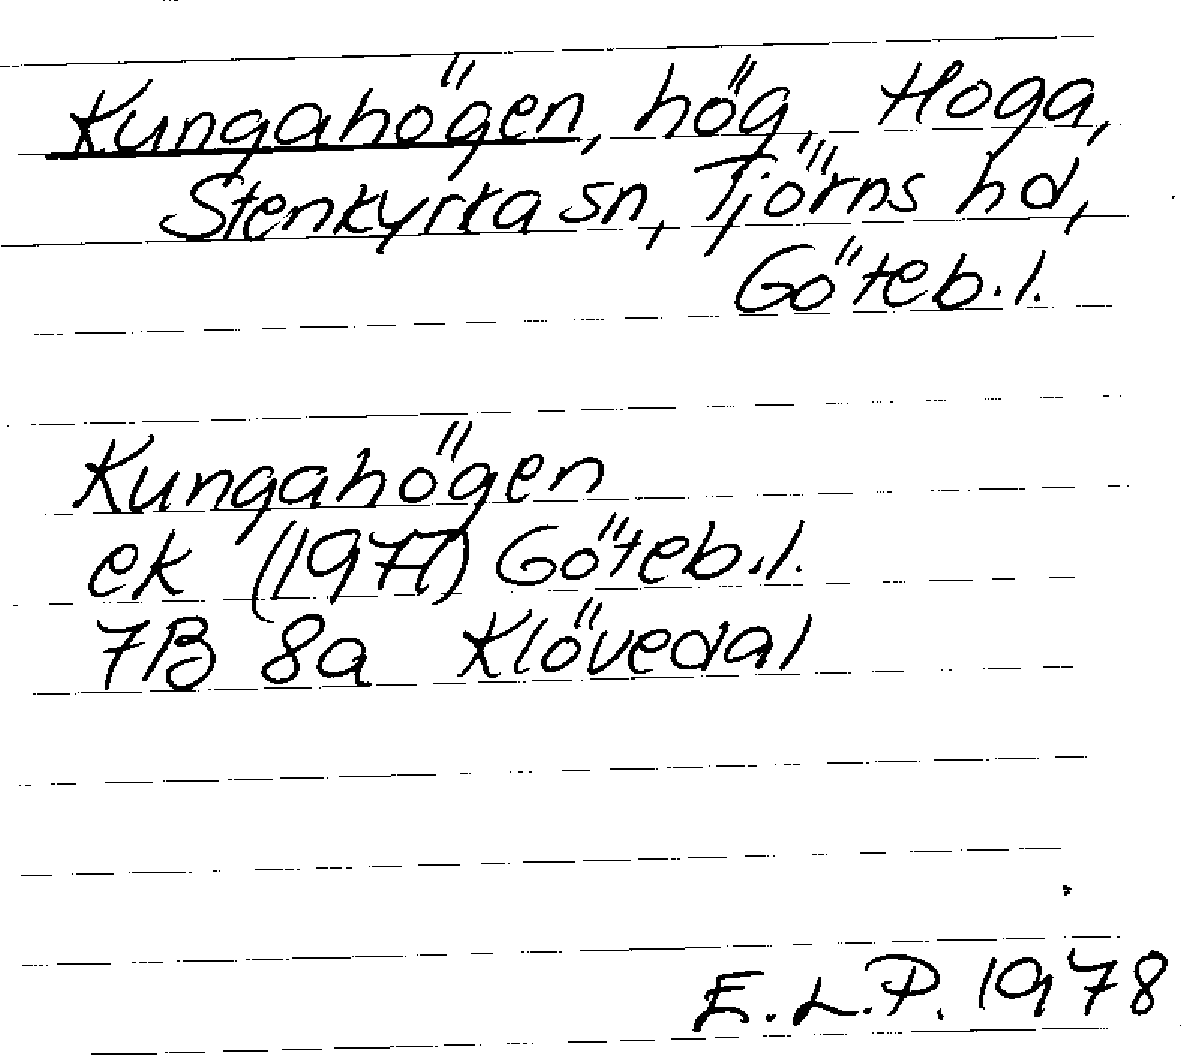 Kungahögen, hög, Hoga,
Stenkyrka sn, Tjörns hd,
Göteb.l.
Kungahögen
ek (1977) Göteb.l.
7B 8a Klövedal
E.L.P. 1978